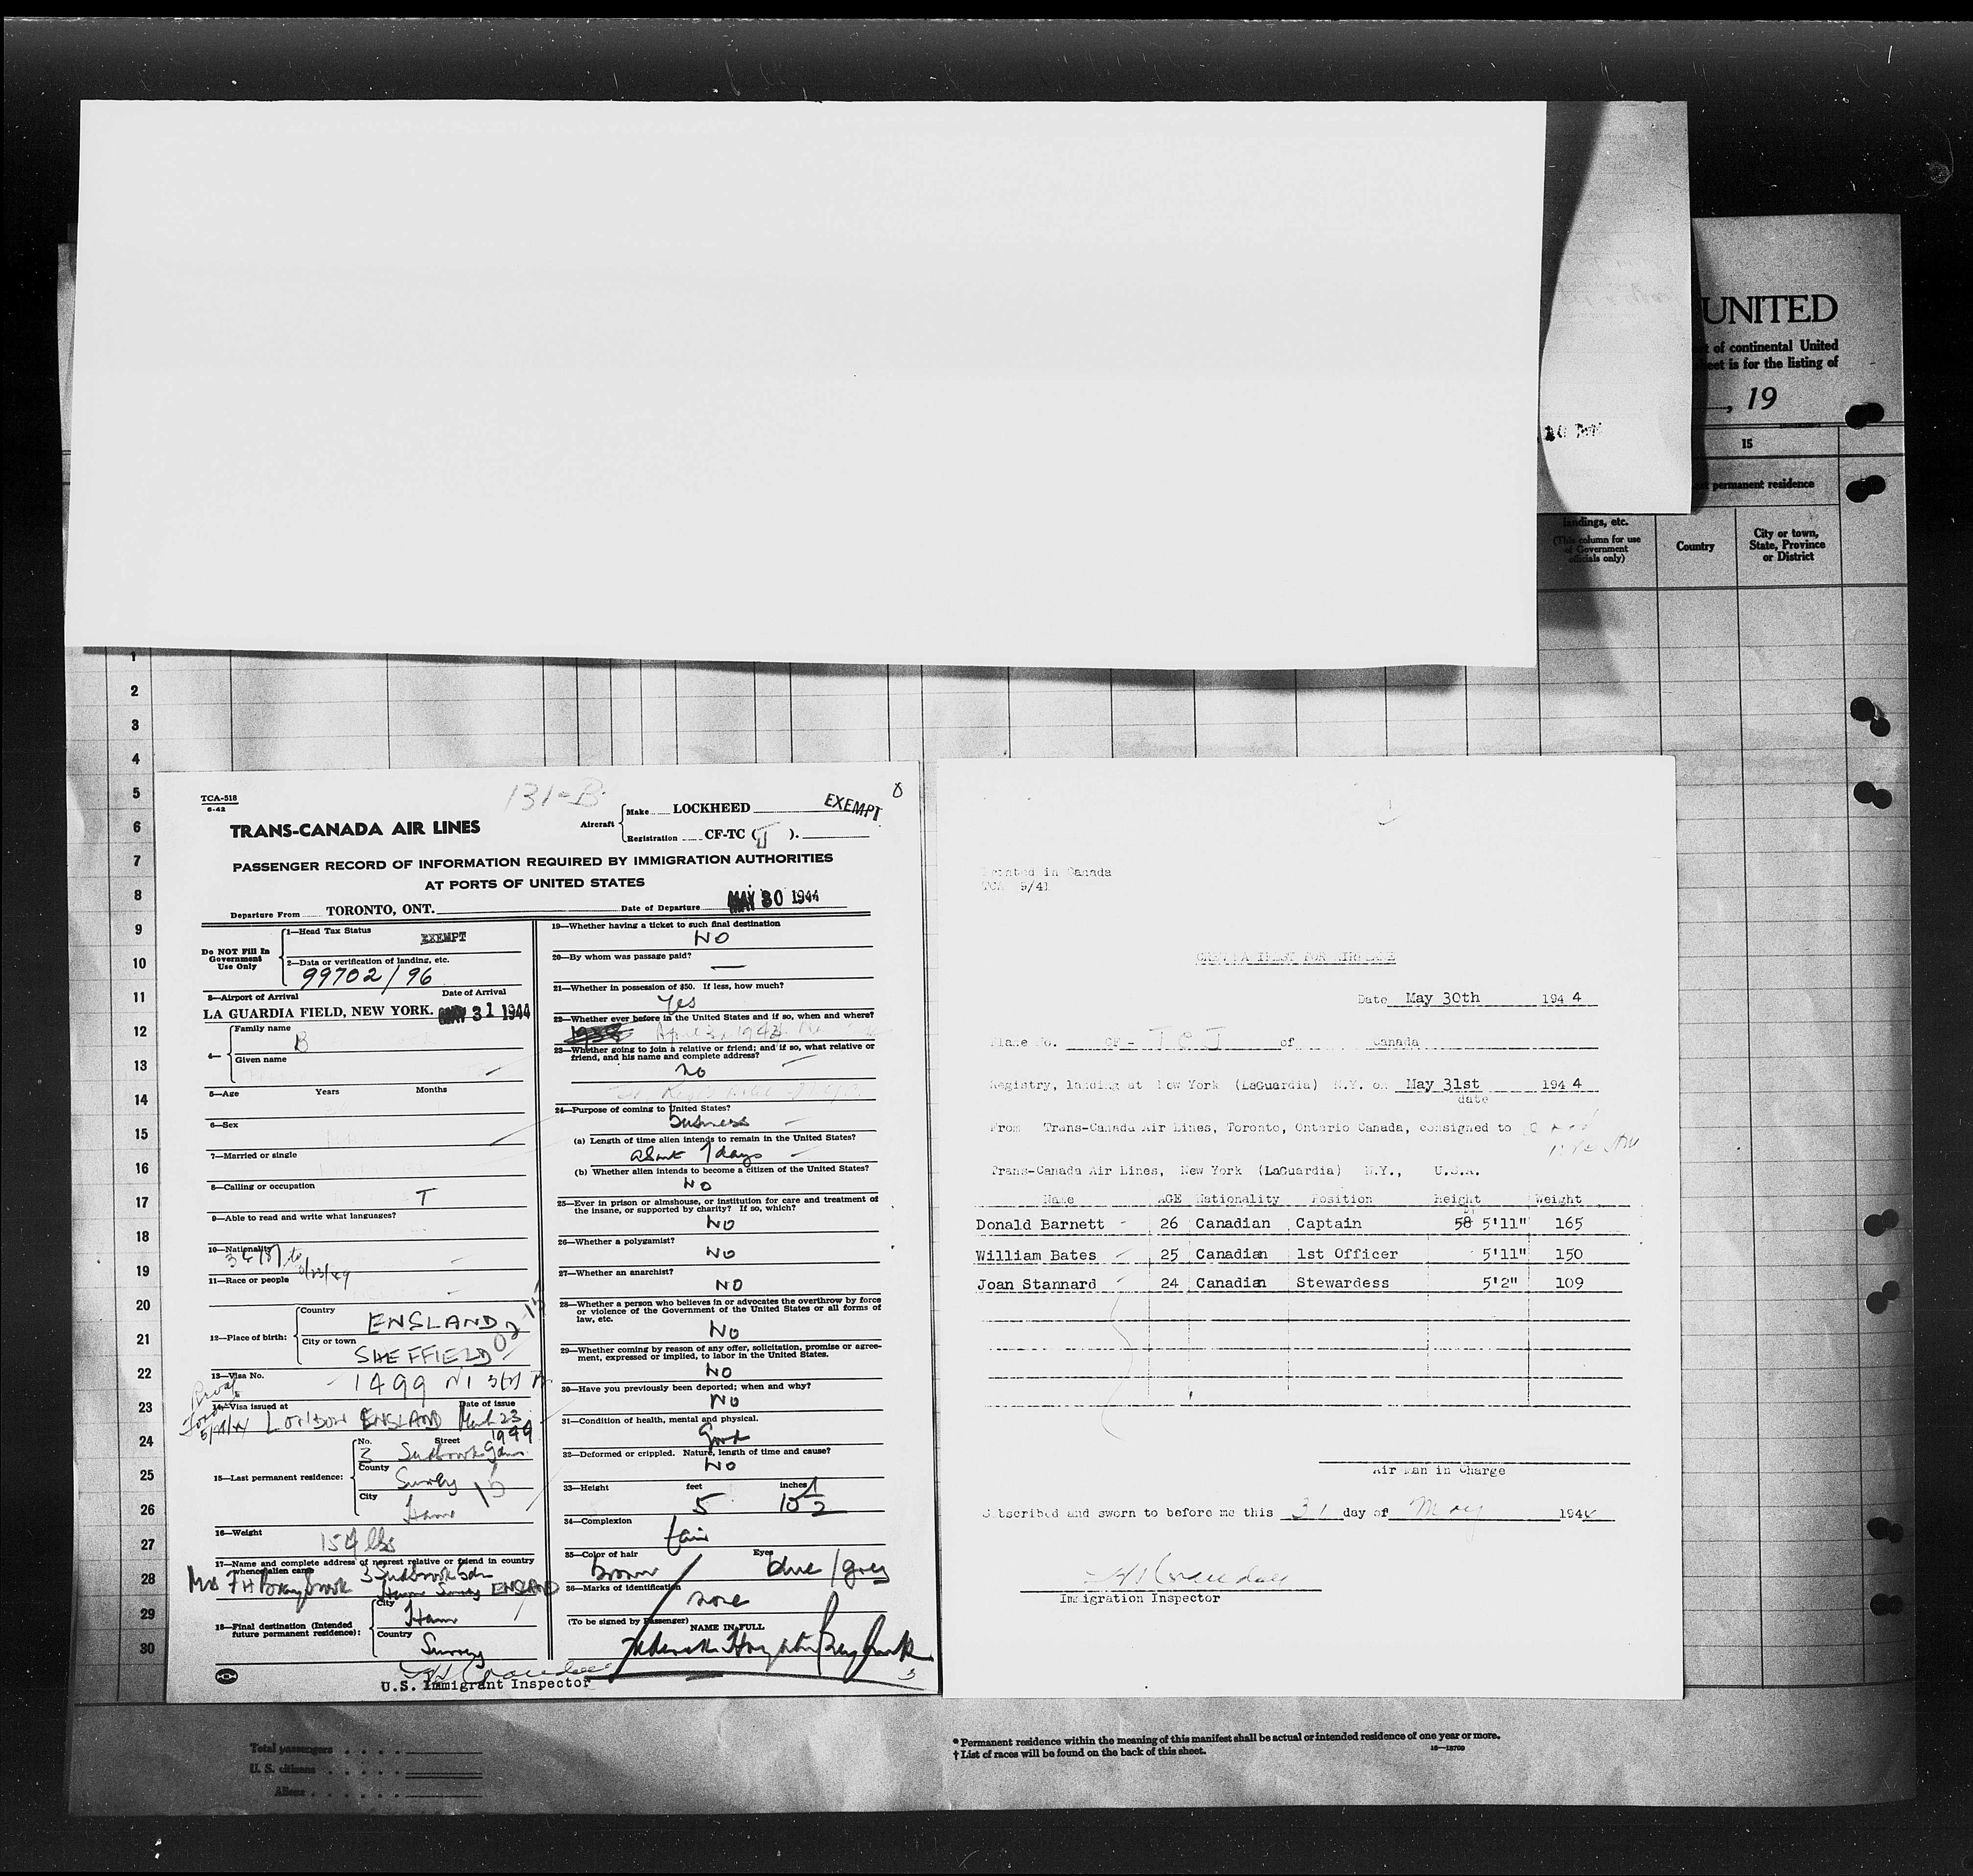 UNITED
of continental United
is for the listing of
, 19
15
permanent residence
landings, etc.
(This column for use
of Government
officials only)
Country
City or town,
State, Province
or District
1
2
3
4
5
6
7
8
9
10
11
12
13
14
15
16
17
18
19
20
21
22
23
24
25
26
27
28
29
30
TCA-518
6-42
131-B
EXEMPT
8
Aircraft
Make LOCKHEED
Registration CF-TC (J).
TRANS-CANADA AIR LINES
PASSENGER RECORD OF INFORMATION REQUIRED BY IMMIGRATION AUTHORITIES
AT PORTS OF UNITED STATES
Departure From TORONTO, ONT. Date of Departure MAY 30 1944
Do NOT Fill In
Government
Use Only
1—Head Tax Status EXEMPT
2—Data or verification of landing, etc.
99702/96
3—Airport of Arrival Date of Arrival
LA GUARDIA FIELD, NEW YORK. MAY 31 1944
4— Family name
B
Given name
5—Age Years Months
6—Sex
7—Married or single
8—Calling or occupation
T
9—Able to read and write what languages?
10—Nationality
11—Race or people
12—Place of birth:
Country
ENGLAND
City or town
SHEFFIELD
13—Visa No.
1499
14—Visa issued at Date of issue
LONDON ENGLAND March 23
1944
15—Last permanent residence:
No. Street
3 Sudbrook Gdns
County
Surrey
City
Ham
16—Weight
154 lbs
17—Name and complete address of nearest relative or friend in country
whence alien came
Mrs F H Braybrook 3 Sudbrook Gdn
Ham Surrey ENGLAND
18—Final destination (Intended
future permanent residence):
City
Ham
Country
Surrey
U.S. Immigrant Inspector
19—Whether having a ticket to such final destination
NO
20—By whom was passage paid?
—
21—Whether in possession of $50. If less, how much?
Yes
22—Whether ever before in the United States and if so, when and where?
23—Whether going to join a relative or friend; and if so, what relative or
friend, and his name and complete address?
No
24—Purpose of coming to United States?
business
(a) Length of time alien intends to remain in the United States?
about 7 days
(b) Whether alien intends to become a citizen of the United States?
NO
25—Ever in prison or almshouse, or institution for care and treatment of
the insane, or supported by charity? If so, which?
NO
26—Whether a polygamist?
NO
27—Whether an anarchist?
NO
28—Whether a person who believes in or advocates the overthrow by force
or violence of the Government of the United States or all forms of
law, etc.
NO
29—Whether coming by reason of any offer, solicitation, promise or agree-
ment, expressed or implied, to labor in the United States.
NO
30—Have you previously been deported; when and why?
NO
31—Condition of health, mental and physical.
Good
32—Deformed or crippled. Nature, length of time and cause?
NO
33—Height feet inches
5 10½
34—Complexion
fair
35—Color of hair Eyes
brown blue/grey
36—Marks of identification
none
(To be signed by Passenger)
NAME IN FULL
Printed in Canada
TCA 9/41
CREW MANIFEST FOR AIRPLANE
Date May 30th 1944
Plane No. CF - TCJ of Canada
Registry, landing at New York (LaGuardia) N.Y. on May 31st 1944
date
From Trans-Canada Air Lines, Toronto, Ontario Canada, consigned to
Trans-Canada Air Lines, New York (LaGuardia) N.Y., U.S.A.
Name AGE Nationality Position Height Weight
Donald Barnett - 26 Canadian Captain 58 5'11" 165
William Bates - 25 Canadian 1st Officer 5'11" 150
Joan Stannard - 24 Canadian Stewardess 5'2" 109
Air Man in Charge
Subscribed and sworn to before me this 31 day of May 1944
Immigration Inspector
Total passengers
U. S. citizens
Aliens
* Permanent residence within the meaning of this manifest shall be actual or intended residence of one year or more.
† List of races will be found on the back of this sheet.
16—18700